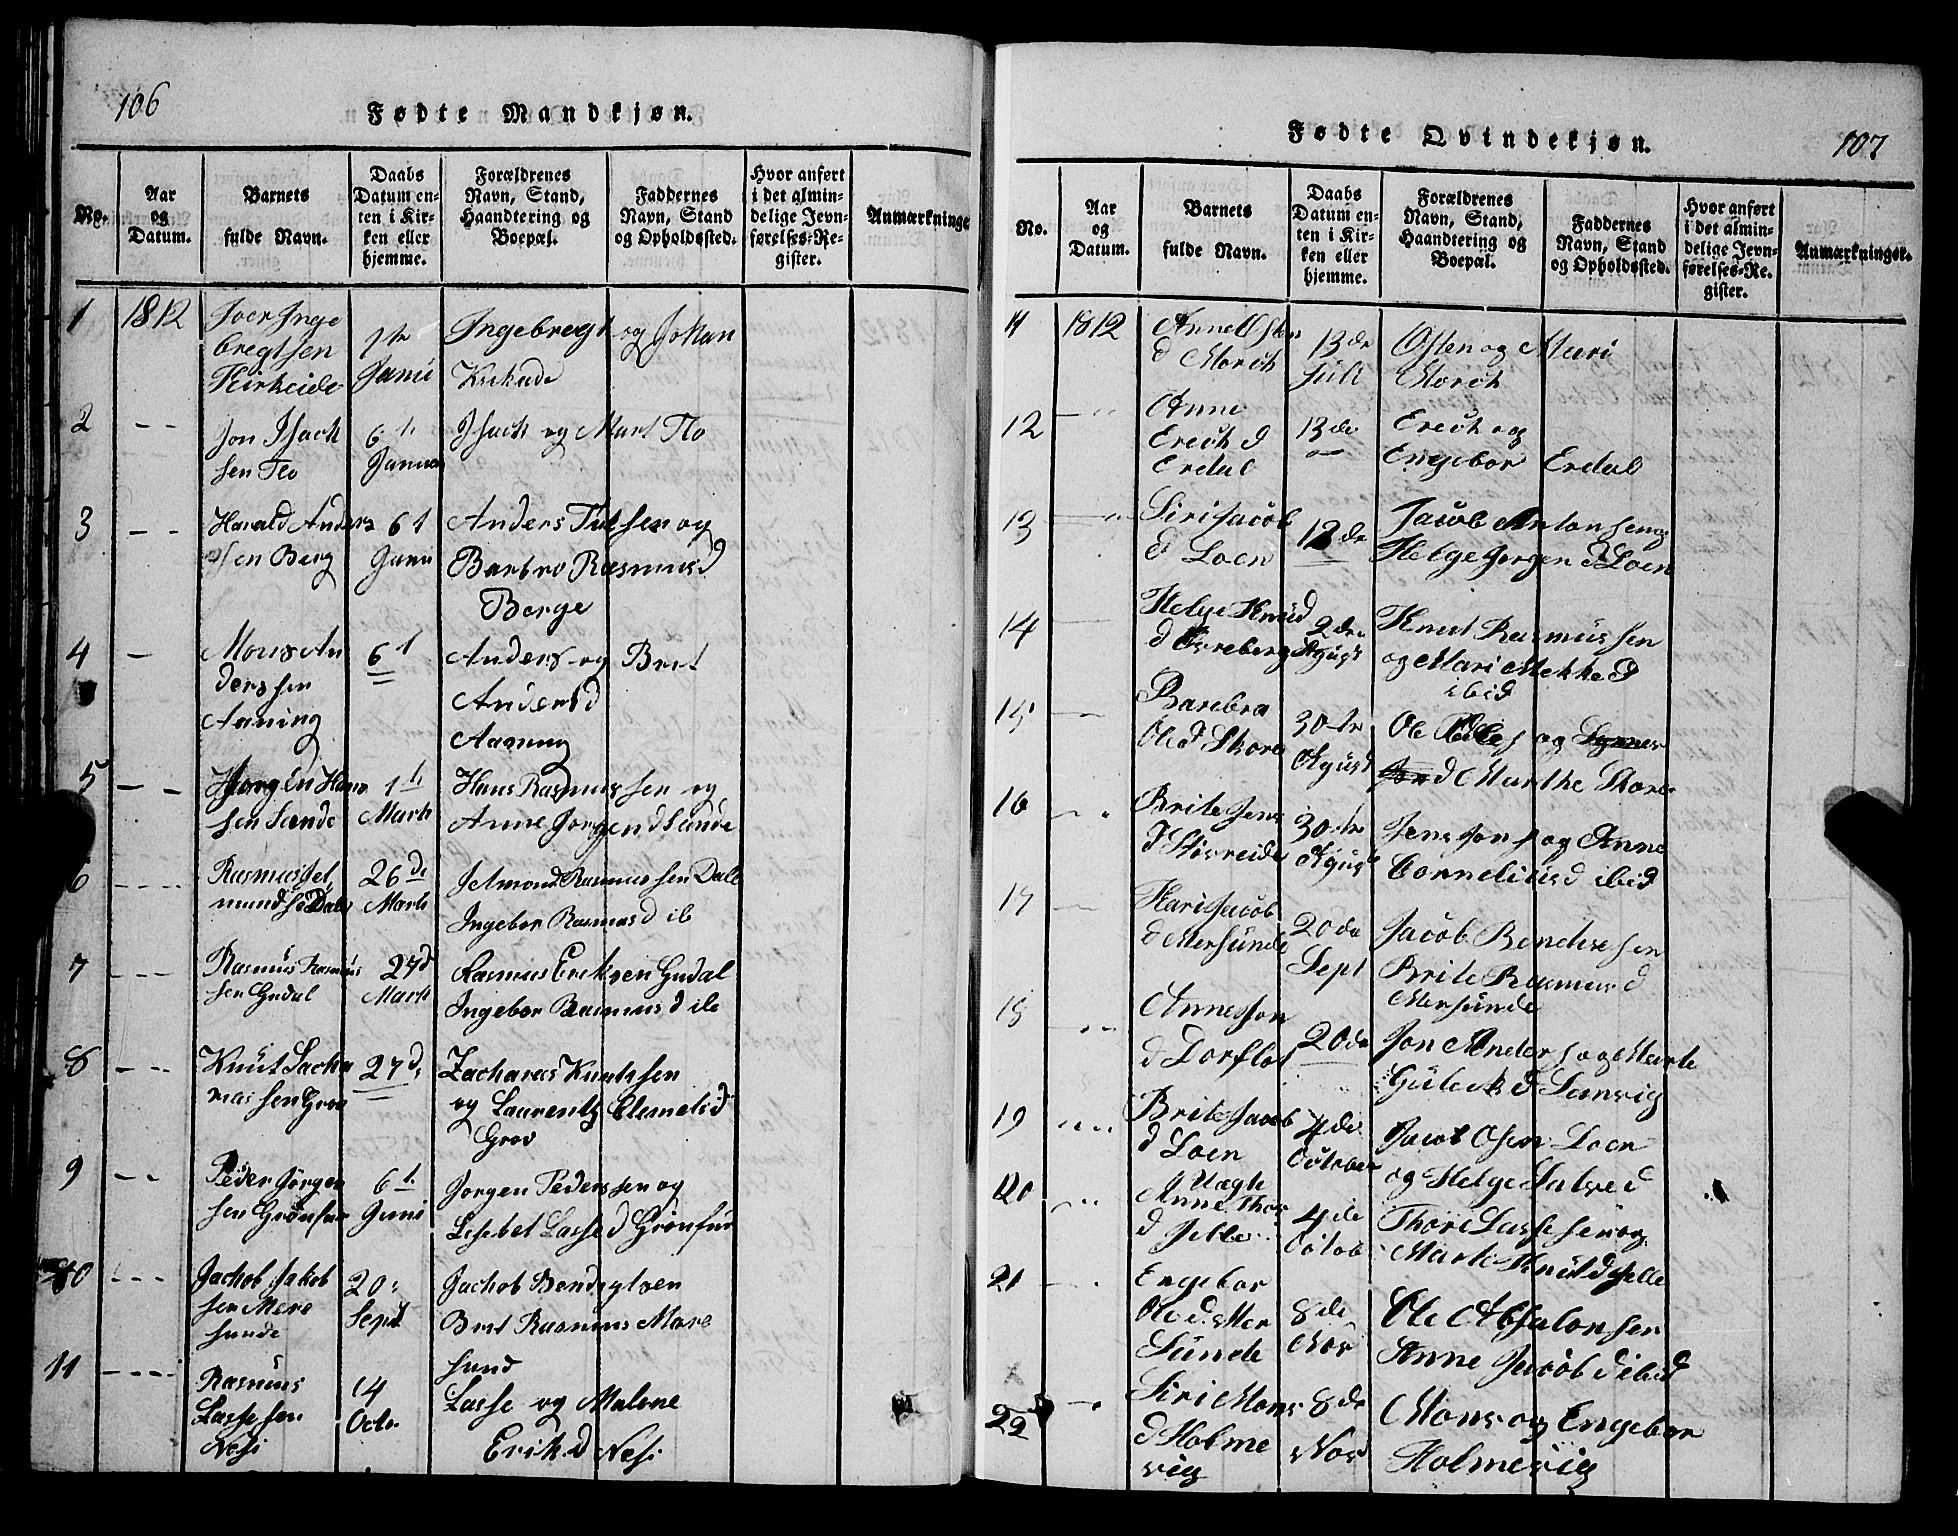 106
Fødte Mandkjøn.
No.
Aar
og
Datum.
Barnets
fulde Navn.
Daabs
Datum en-
ten i Kir-
ken eller
hjemme.
Forældrenes
Navn, Stand,
Haandtering og
Boepæl.
Faddernes
Navn, Stand
og Opholdssted.
Hvor anført
i det almin-
delige Jevn-
førelses-Re-
gister.
Anmærkninge
1 1812
Joer Inge
bregtsen
Janu
Ingebregt og Johan
2
Jon Isach
sen Flo
6
Janua
Isach og Mart Flo
3
Harald Anders
sen Berg
6
Janu
Anders
og
Barbro Rasmusd
Berge
4
Mons An
derssen
Aaning
6
Anders og Brit
Andersd
Aaning
5
Jorgen Hans
sen Sunde
1
Marts
Hans Rasmussen og
Anne Jorgend Sunde
6
Rasmus Jet
mundsen Dale
26 de
Marts
Jetmond Rasmussen Dale
Ingebor Rasmusd ib
7
Rasmus Rasmus
sen Gudal
27 d
Marts
Rasmus Eriksen Gudal
Ingebor Rasmusd ib
8
Knut Sacha
riassen Grov
27 d
Zacharias Knutssen
og Laurentz
Grov
9
Peder Jørgen
sen Grønfur
6
Juni
Jorgen Pederssen og
Lisebet Lassed Grønfur
10
Jachob Jakob
sen Mere
sunde
20
Sept
Jachob Bendigtsen
Brit Rasmus More
sund
11
Rasmus
Lassesen
Nesi
14
Octo.
Lasse og Malene
Erikd Nesi
Fødte Qvindekjøn.
107
No.
Aar
og
Datum.
Barnets
fulde Navn.
Daabs
Datum en-
ten i Kir-
ken eller
hjemme.
Forældrenes
Navn, Stand,
Haandtering og
Boepæl.
Faddernes
Navn, Stand
og Opholdssted.
Hvor anført
i det almin-
delige Jevn-
førelses-Re-
gister.
Anmærkninger.
11 1812
Anne Osten
d Morch
13 de
Juli
Osten og Mari
Morch
12
Anne
Erech d
Erdal
13 de
Erech og
Engebor Erdal
13
Siri Jacob
d Loen
12 de
Jacob Antonsen og
Helge Jorgen d Loen
14
Helge Knud
d
2 de
Agust
Knut Rasmussen
og Mari Mekked
ibid
15
Barebra
Oled Skore
30 te
Agust
Ole
og
Marthe Skore
16
Brite Jens
d
30 te
Agust
Jens Jons og Anne
Corneliusd ibid
17
Kari Jacob
d Mersunde
20 de
Sept
Jacob
Brite Rasmusd
Mersunde
18
Anne Jon
d Dorflot
20 de
Jon Anders og Marte
Gulek d
19
Brite Jacob
d Loen
4 de
October
Jacob Olsen Loen
og Helge Salved
20
Uægte
Anne Thor
d Jelle
4 de
Octob
Thore Lassesen og
Marte Knutd Jelle
21
Engebor
Oled Mer
Sunde
8 de
Nov
Ole Absalonsen
Anne Jacobd ibid
22
Siri Mons
d Holme
vig
8 de
Nov
Mons og Engebor
Holmevig